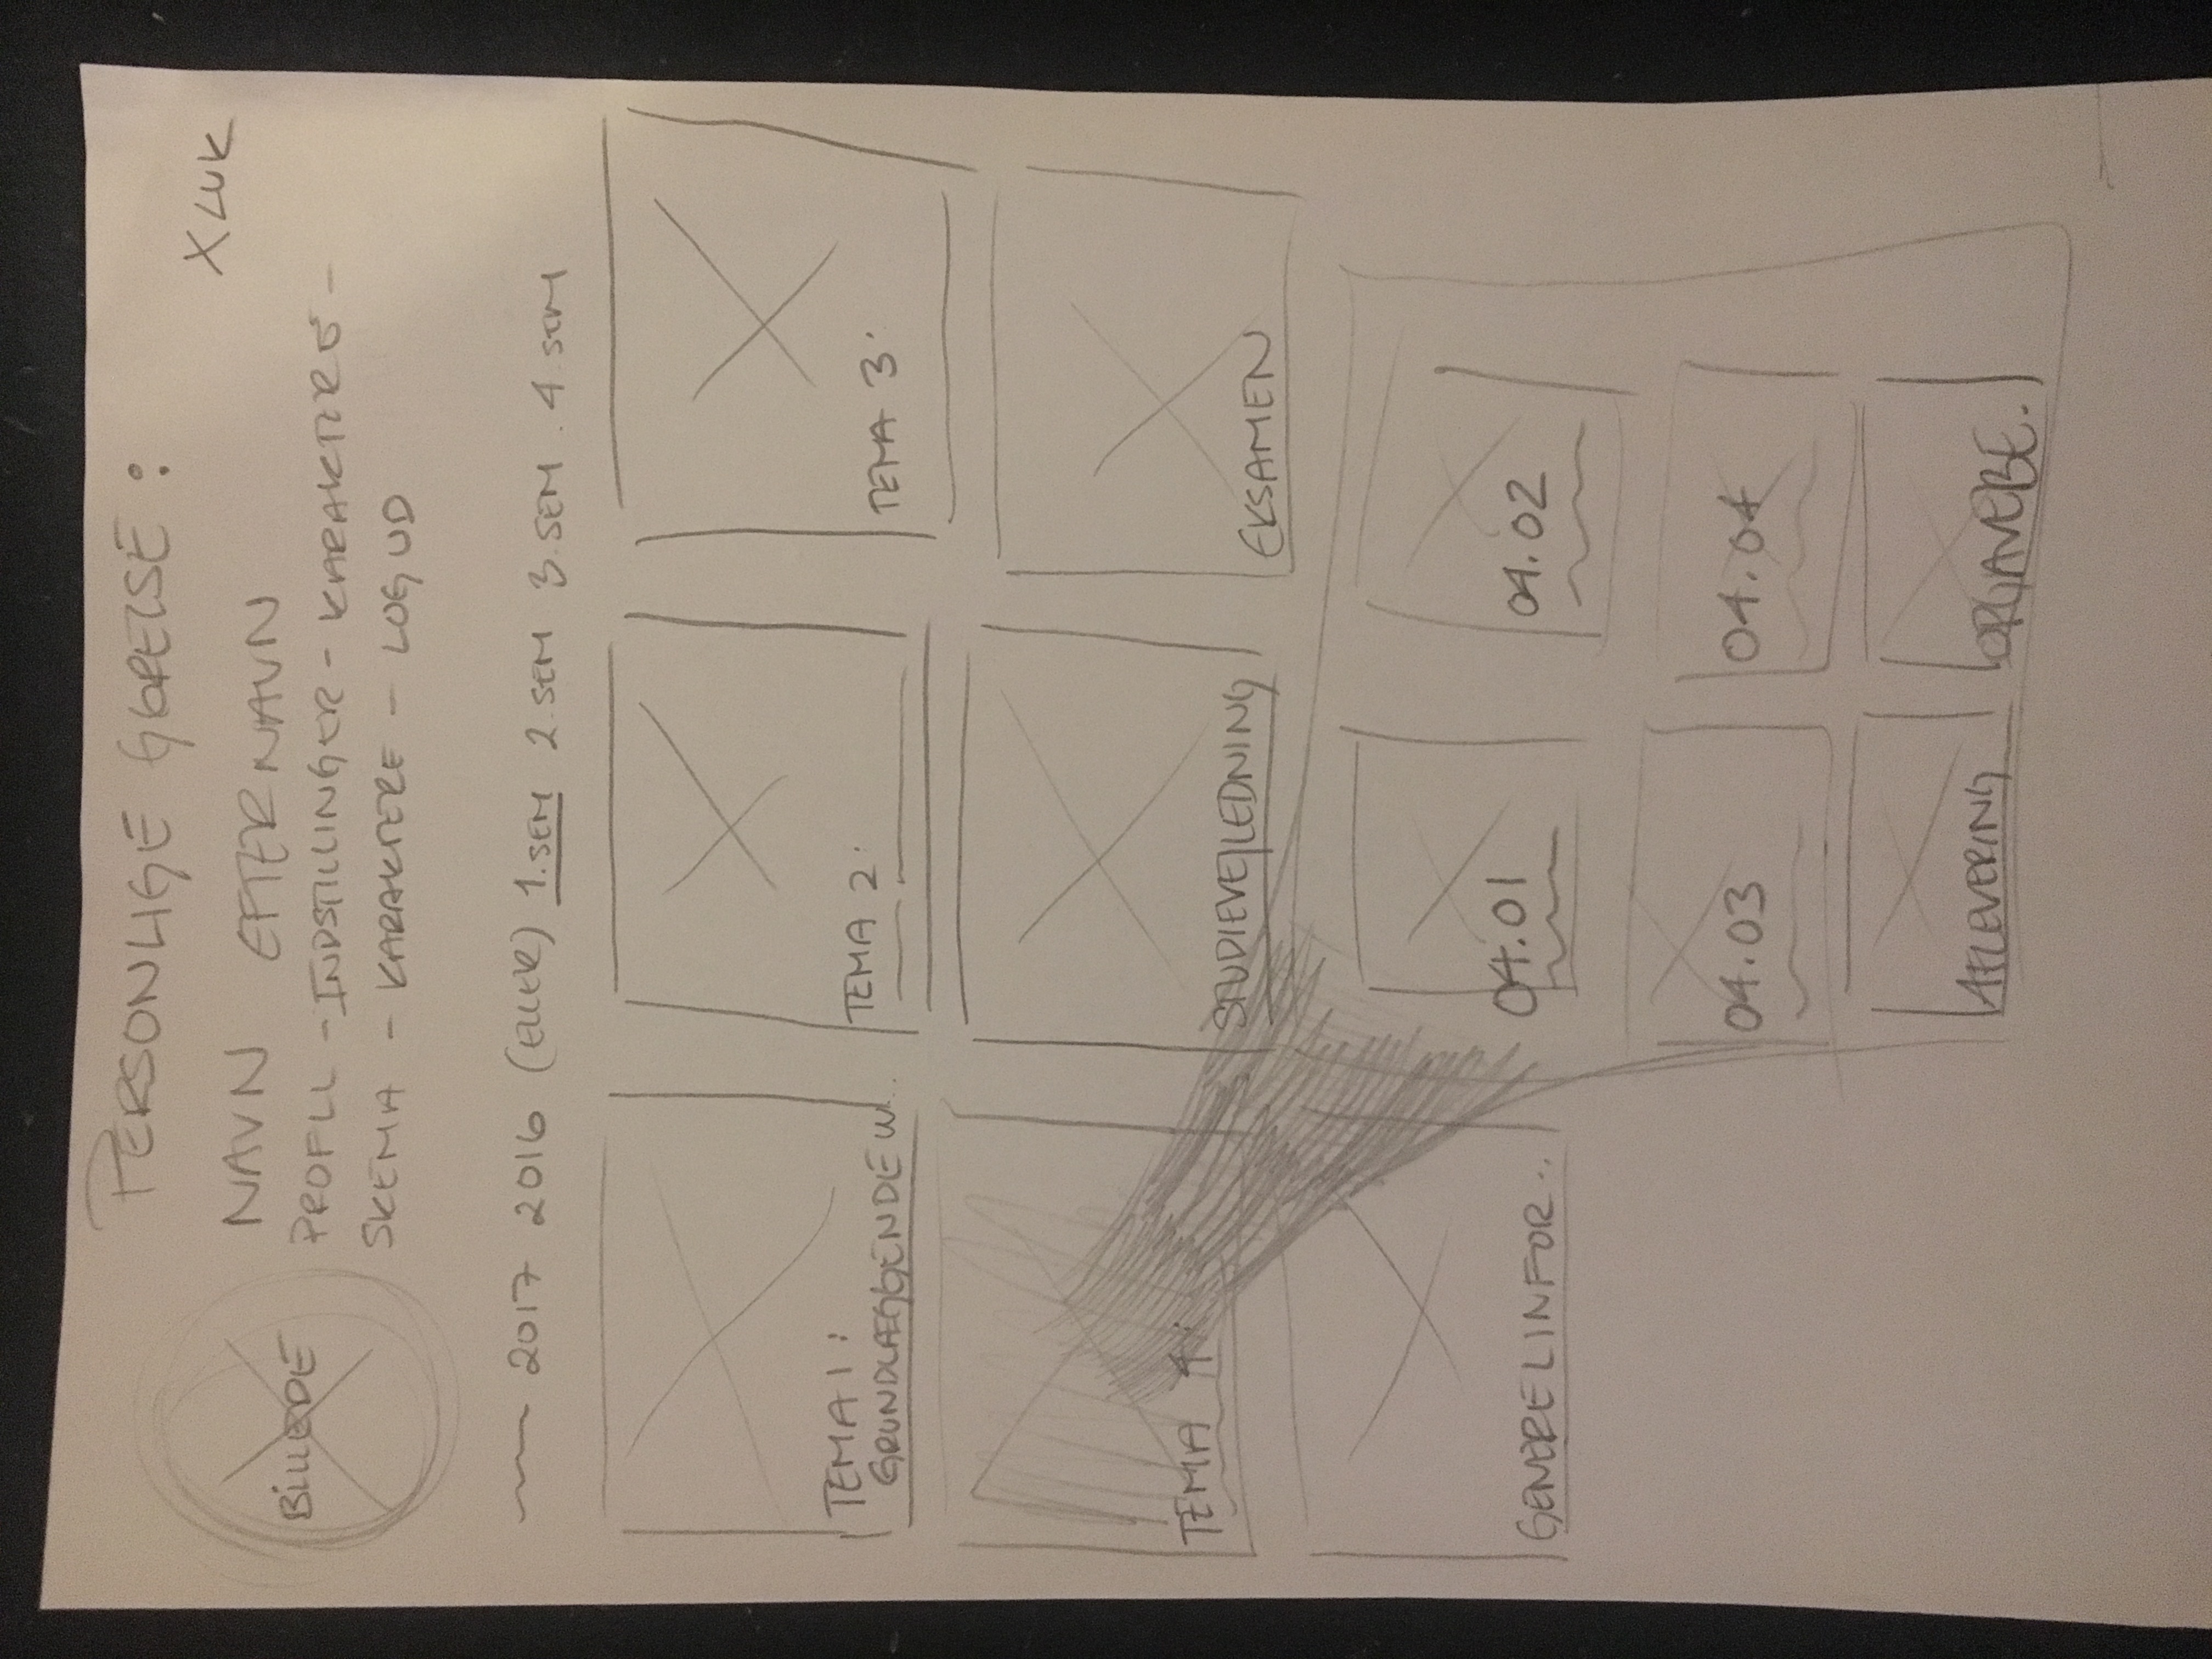 PERSONLIGE
X LUK
NAVN EFTERNAVN
BILLEDE
PROFIL - INDSTILLINGER - KARAKTERE -
SKEMA - KARAKTERE - LOG UD
2017 2016 (ELLER) 1.SEM 2.SEM 3.SEM. 4.SEM
TEMA 1:
GRUNDLÆGGENDE W..
TEMA 2:
TEMA 3:
TEMA 4:
STUDIEVEJLEDNING
EKSAMEN
GENEREL INFOR..
04.01
04.02
04.03
04.04
AFLEVERING